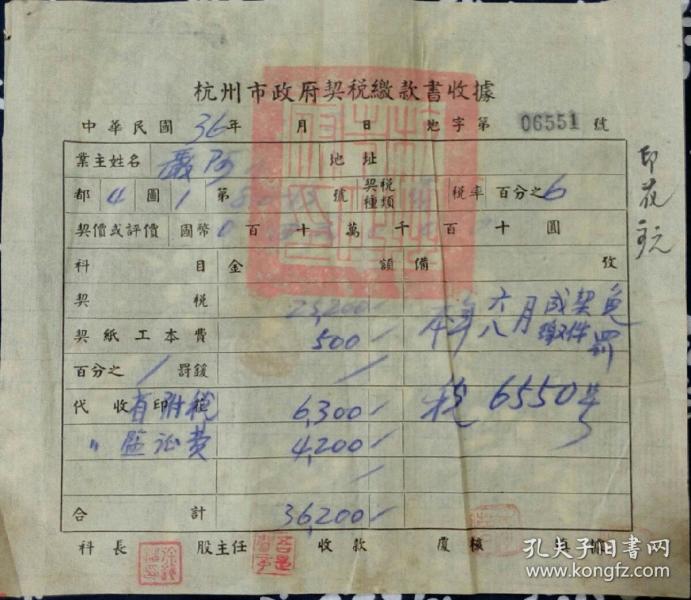 杭州市政府契税繳款書收據
中華民國 36年 月 日 地字第 06551 號
業主姓名 地址
都 4 圖 1 第 號 契税種類 税率 百分之 6
契價或評價 國幣 百十萬千百十圓
科目 金額 備攷
契税 25,200
契紙工本費 500
百分之 / 罰鍰 /
代收 附税 6,300
〃 監证费 4,200
合計 36,200
本年六月成契
八月繳件免罰
税 6550号
印花
科長 股主任 收款 覆核 填
孔夫子旧書网
www.kongfz.com